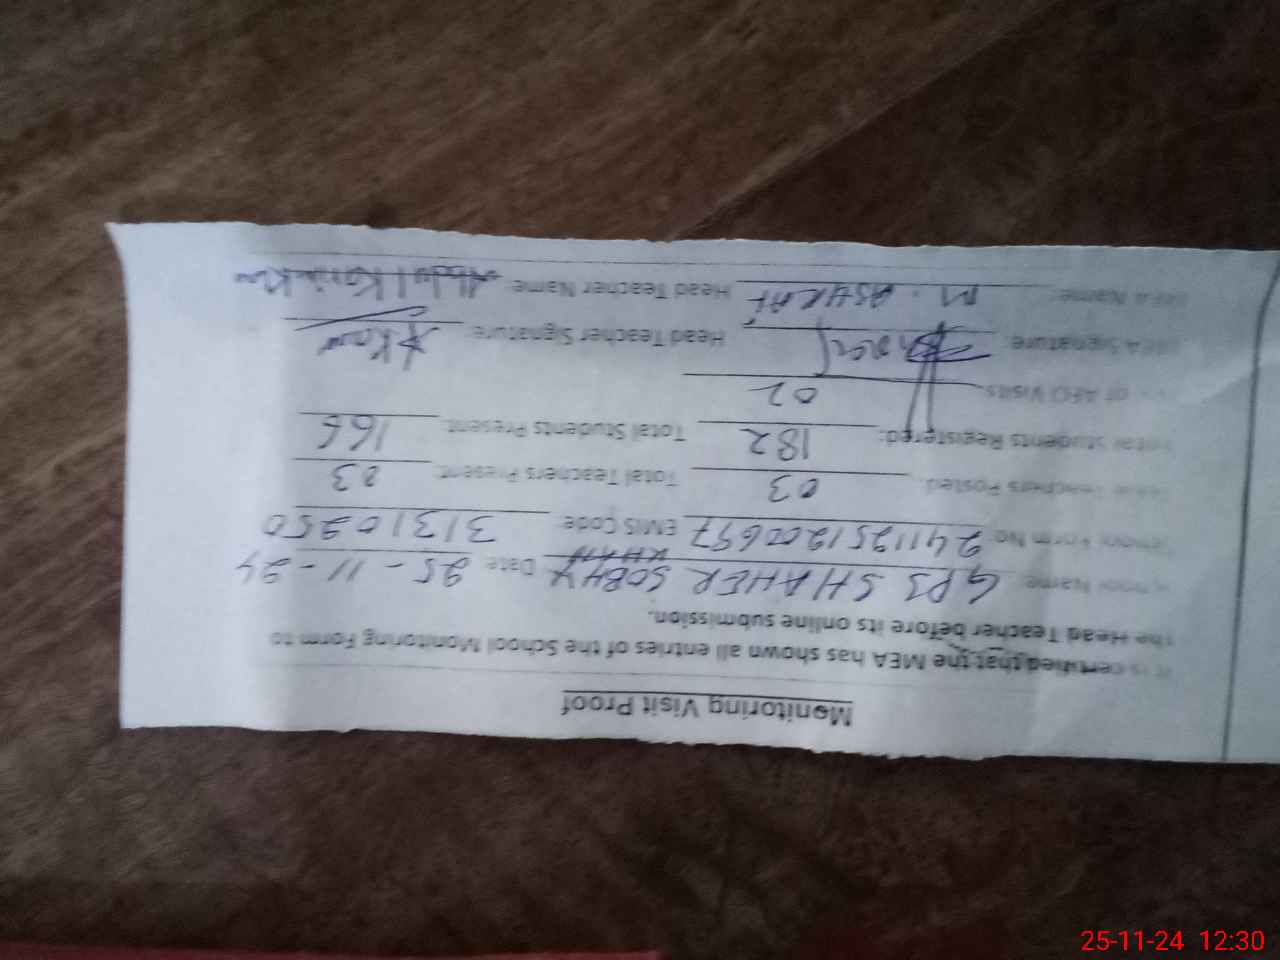 Monitoring Visit Proof
It is certified that the MEA has shown all entries of the School Monitoring Form to
the Head Teacher before its online submission.
School Name: GPS SHAHER SOBHY KHAN Date: 25-11-24
School Form No: 2411251200697 EMIS Code: 31310250
Total Teachers Posted: 03 Total Teachers Present: 03
Total students Registered: 182 Total Students Present: 166
No. of AEO Visits: 02
MEA Signature: Head Teacher Signature:
MEA Name: M. ASHRAF Head Teacher Name: Abdul Karim
25-11-24 12:30